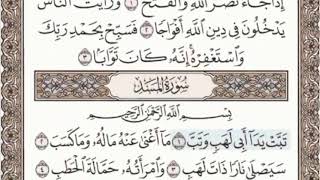 إِذَا جَاءَ نَصْرُ اللَّهِ وَالْفَتْحُ ١ وَرَأَيْتَ النَّاسَ
يَدْخُلُونَ فِي دِينِ اللَّهِ أَفْوَاجًا ٢ فَسَبِّحْ بِحَمْدِ رَبِّكَ
وَاسْتَغْفِرْهُ إِنَّهُ كَانَ تَوَّابًا ٣
سُورَةُ الْمَسَدِ
بِسْمِ اللَّهِ الرَّحْمَٰنِ الرَّحِيمِ
تَبَّتْ يَدَا أَبِي لَهَبٍ وَتَبَّ ١ مَا أَغْنَىٰ عَنْهُ مَالُهُ وَمَا كَسَبَ ٢
سَيَصْلَىٰ نَارًا ذَاتَ لَهَبٍ ٣ وَامْرَأَتُهُ حَمَّالَةَ الْحَطَبِ ٤